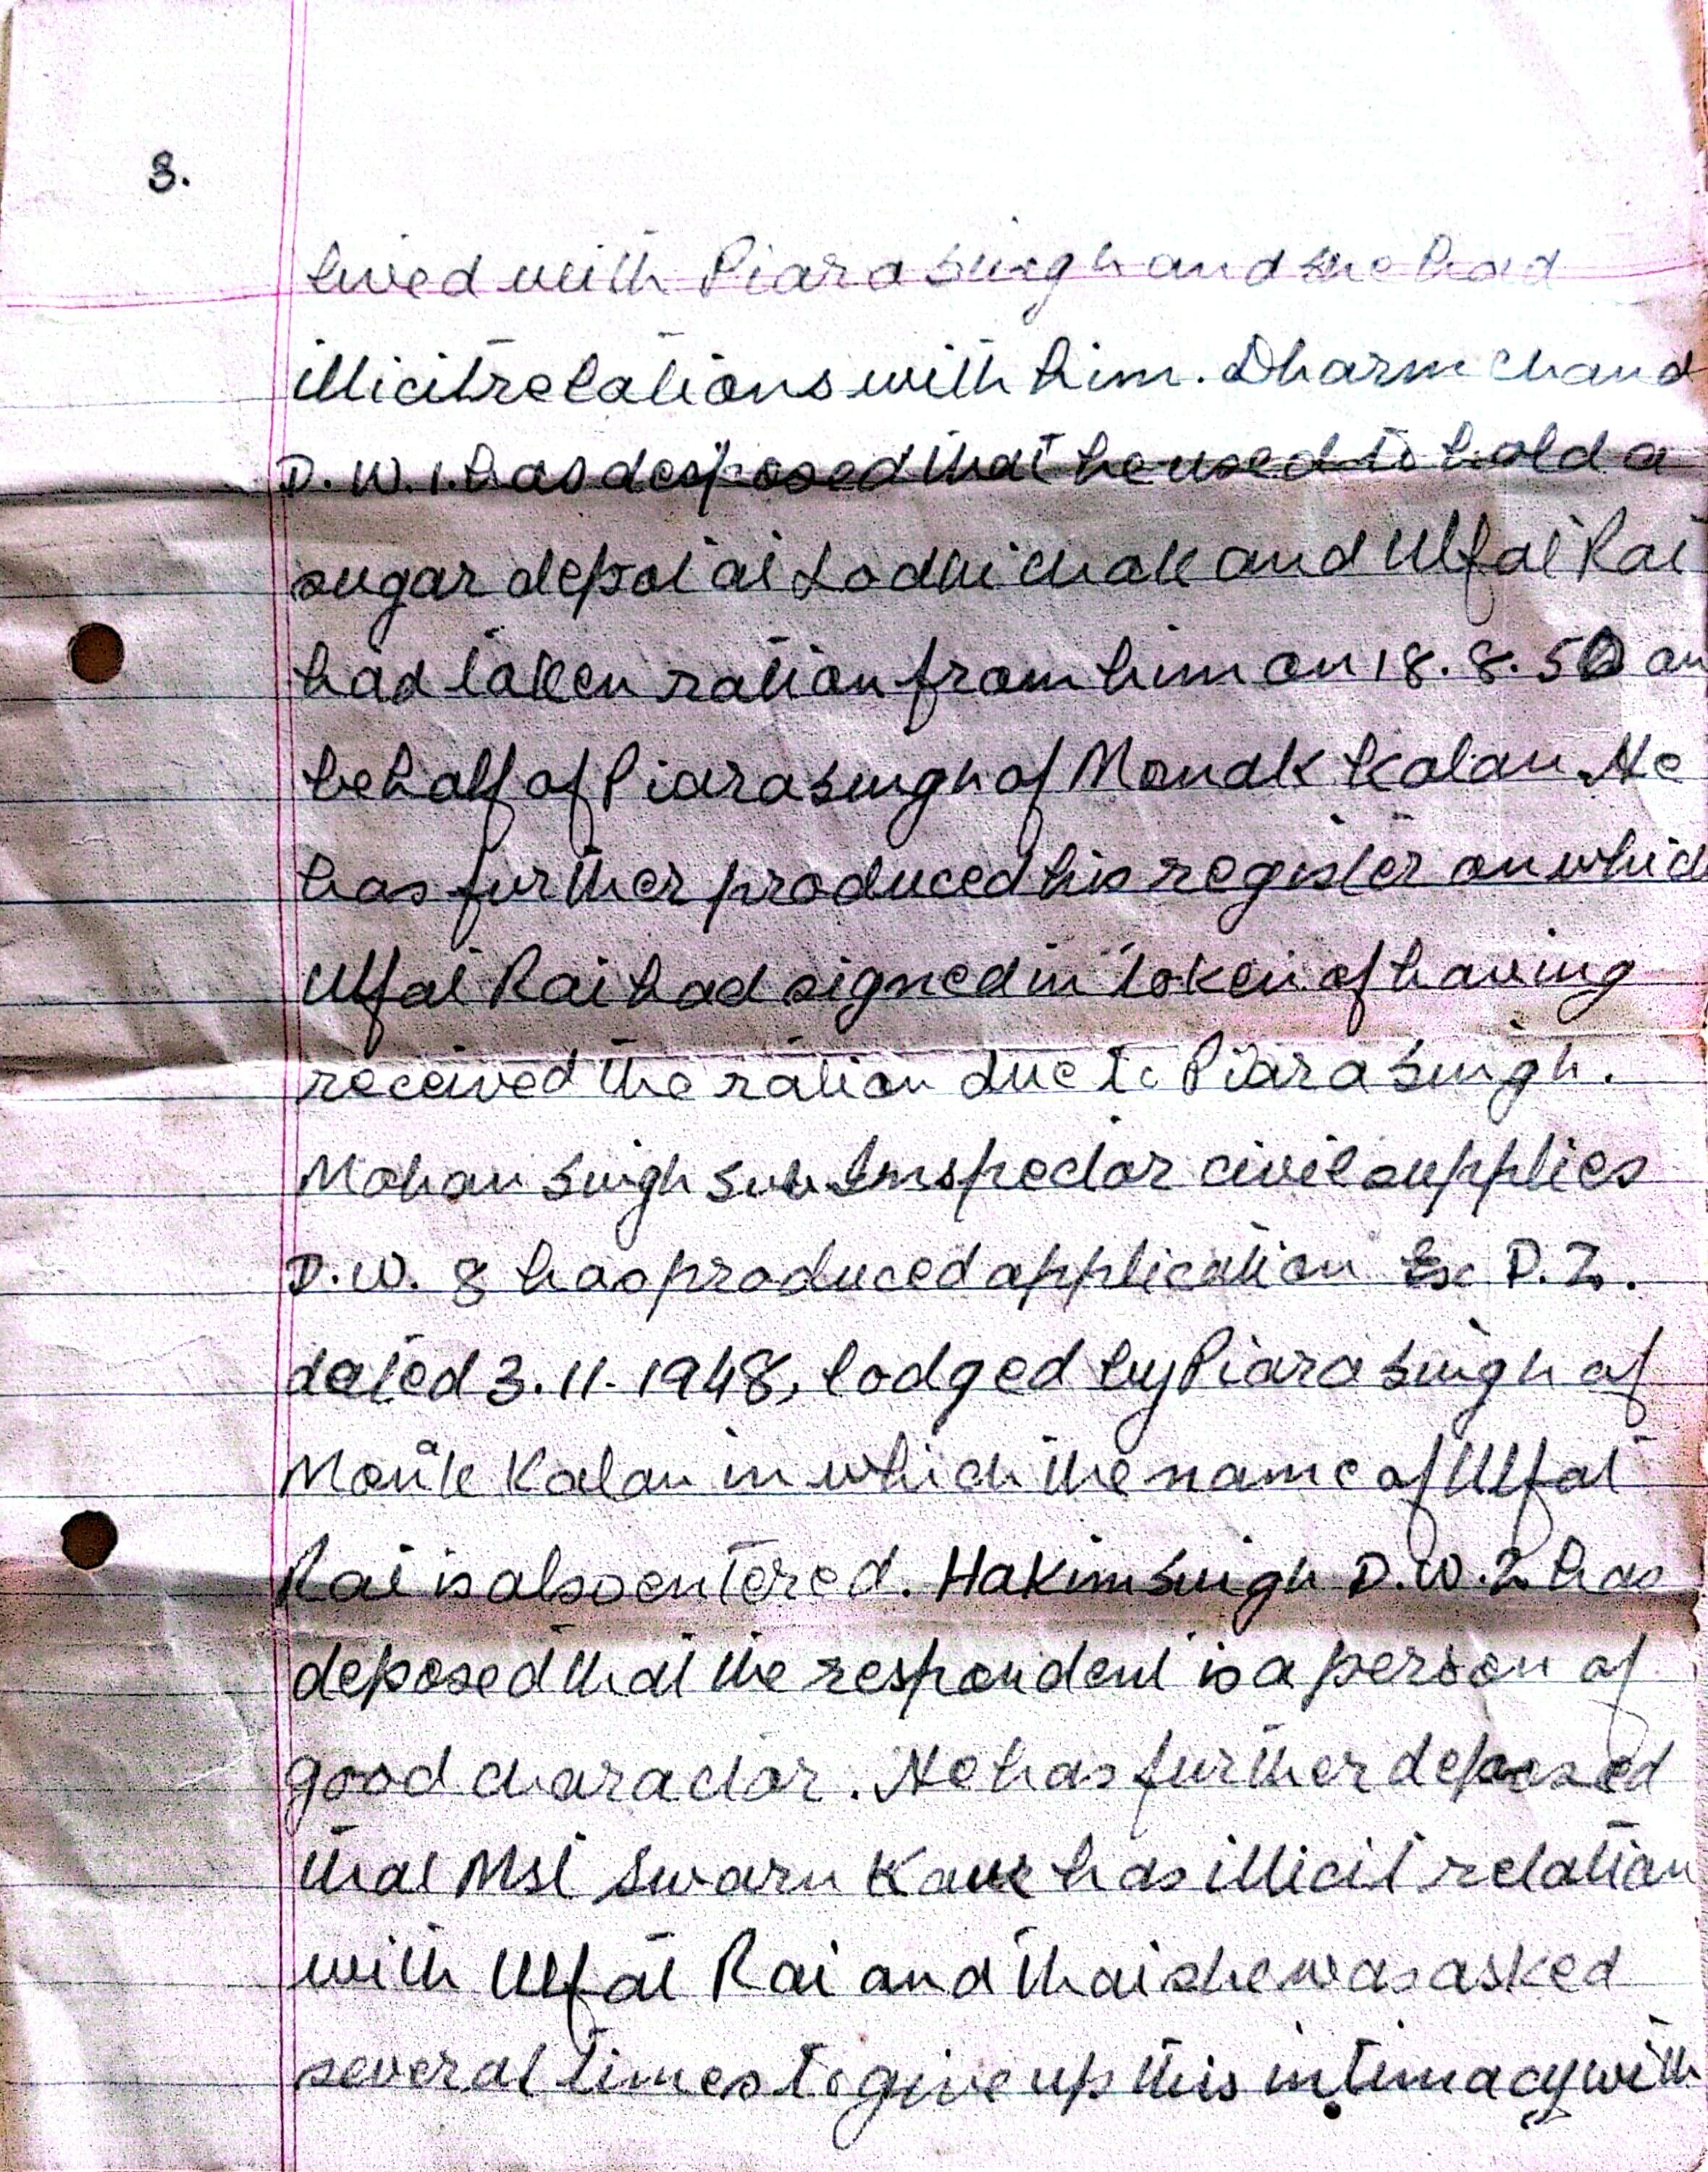 3.
lived with Piara Singh and she had
illicit relations with him. Dharm Chand
D.W.1. has deposed that he used to hold a
sugar depot at Lodhi chak and Ulfat Rai
had taken ration from him on 18.8.50 on
behalf of Piara Singh of Kalan. He
has further produced his register on which
Ulfat Rai had signed in token of having
received the ration due to Piara Singh.
Mohan Singh Sub Inspector civil supplies
D.W. 8 has produced application Ex D.2.
dated 3.11.1948, lodged by Piara Singh of
Kalan in which the name of Ulfat
Rai is also entered. Hakim Singh D.W.2 has
deposed that the respondent is a person of
good charactor. He has further deposed
that Mst Swarn Kaur has illicit relation
with Ulfat Rai and that she was asked
several times to give up this intimacy with